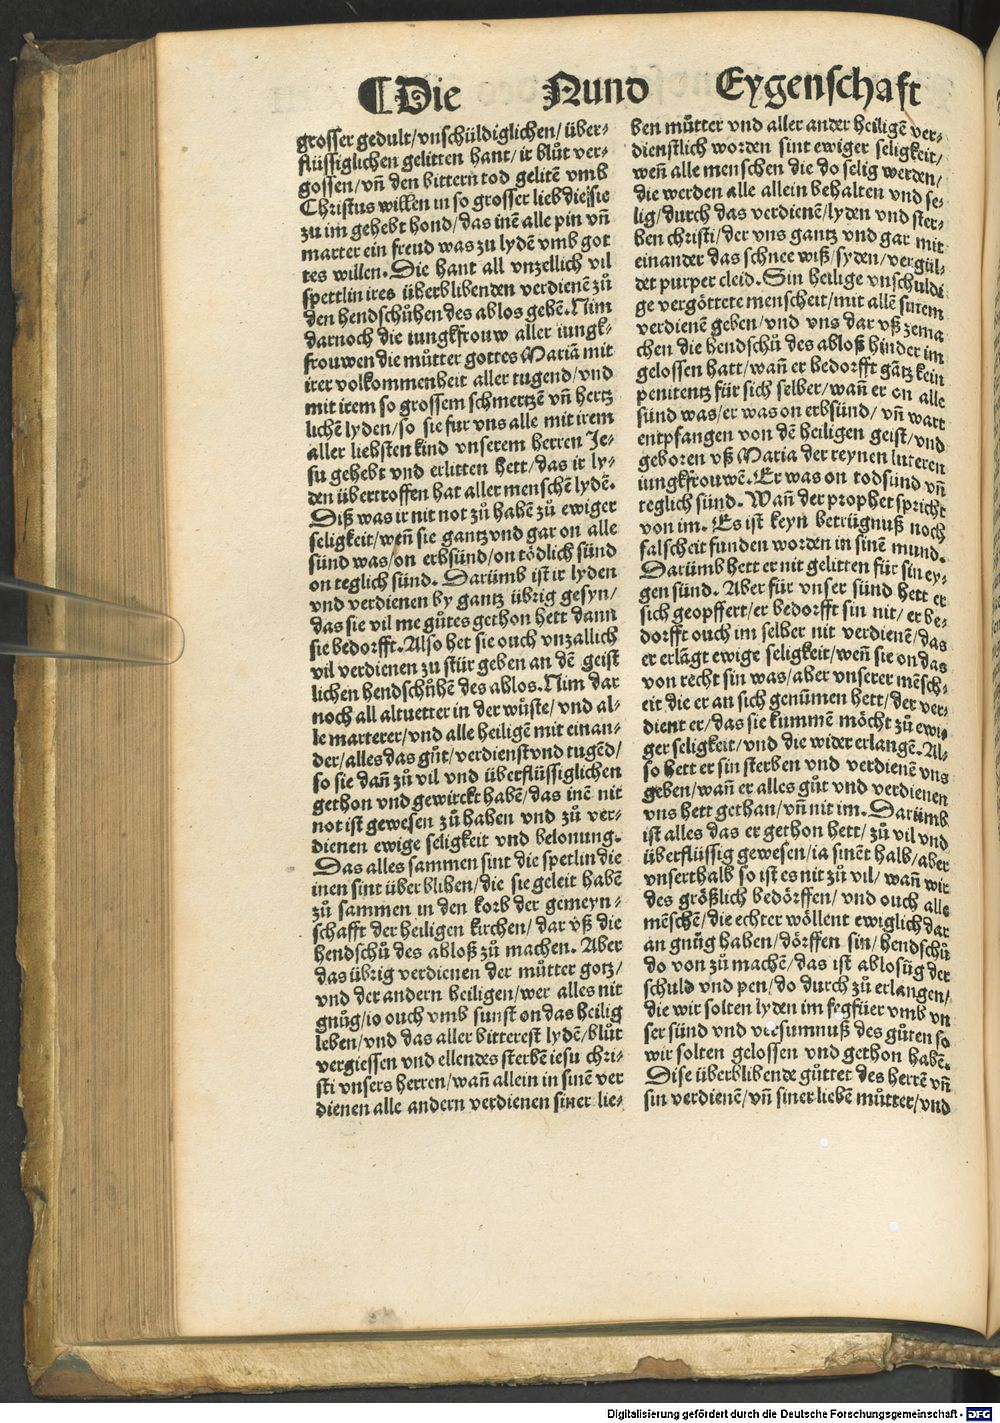 ¶Die Nund Eygenschaft
grosser gedult/vnschüldiglichen/über⸗
flüssiglichen gelitten hant/ir blůt ver⸗
gossen/vñ den bittern tod gelitẽ vmb
Christus willen in so grosser lieb die sie
zu im gehebt hond/das inẽ alle pin vñ
marter ein freud was zu lydẽ vmb got
tes willen. Die hant all vnzellich vil
spettlin ires überblibenden verdienẽ zů
den hendschůhen des ablos gebẽ. Nim
darnoch die iungkfrouw aller iungk⸗
frouwen die můtter gottes Mariã mit
irer volkommenheit aller tugend/vnd
mit irem so grossem schmertzẽ vñ hertz
lichẽ lyden/so sie fur vns alle mit irem
aller liebsten kind vnserem herren Je⸗
su gehebt vnd erlitten hett/das ir ly⸗
den übertroffen hat aller menschẽ lydẽ.
Diß was ir nit not zů habẽ zů ewiger
seligkeit/weñ sie gantz vnd gar on alle
sünd was/on erbsünd/on tödlich sünd
on teglich sünd. Darümb ist ir lyden
vnd verdienen by gantz übrig gesyn/
das sie vil me gůtes gethon hett dann
sie bedorfft. Also het sie ouch vnzallich
vil verdienen zu stür geben an dẽ geist
lichen hendschůhẽ des ablos. Nim dar
noch all altuetter in der wüste/vnd al⸗
le marterer/vnd alle heiligẽ mit einan⸗
der/alles das gůt/verdienst vnd tugẽd/
so sie dañ zů vil vnd überflüssiglichen
gethon vnd gewirckt habẽ/das inẽ nit
not ist gewesen zů haben vnd zů ver⸗
dienen ewige seligkeit vnd belonung.
Das alles sammen sint die spetlin die
inen sint über bliben/die sie geleit habẽ
zů sammen in den korb der gemeyn⸗
schafft der heiligen kirchen/dar vß die
hendschů des abloß zů machen. Aber
das übrig verdienen der můtter gotz/
vnd der andern heiligen/wer alles nit
gnůg/io ouch vmb sunst on das heilig
leben/vnd das aller bitterest lydẽ/blůt
vergiessen vnd ellendes sterbẽ iesu chri⸗
sti vnsers herren/wañ allein in sinẽ ver
dienen alle andern verdienen siner lie⸗
ben můtter vnd aller ander heiligẽ ver⸗
dienstlich worden sint ewiger seligkeit/
weñ alle menschen die do selig werden/
die werden alle allein behalten vnd se⸗
lig/durch das verdienẽ/lyden vnd ster⸗
ben christi/der vns gantz vnd gar mit
einander das schnee wiß/syden/vergül⸗
det purper cleid. Sin heilige vnschuldi
ge vergöttete menscheit/mit allẽ sinem
verdienẽ geben/vnd vns dar vß zema
chen die hendschů des abloß hinder im
gelossen hatt/wañ er bedorfft gãtz kein
penitentz für sich selber/wañ er on alle
sünd was/er was on erbsünd/vñ wart
entpfangen von dẽ heiligen geist/vnd
geboren vß Maria der reynen luteren
iungkfrouwẽ. Er was on todsünd vñ
teglich sünd. Wañ der prophet spricht
von im. Es ist keyn betrügnuß noch
falscheit funden worden in sinẽ mund.
Darümb hett er nit gelitten für sin ey⸗
gen sünd. Aber für vnser sünd hett er
sich geopffert/er bedorfft sin nit/er be⸗
dorfft ouch im selber nit verdienẽ/das
er erlãgt ewige seligkeit/weñ sie on das
von recht sin was/aber vnserer mẽsch⸗
eit die er an sich genũmen hett/der ver⸗
dient er/das sie kummẽ möcht zů ewi⸗
ger seligkeit/vnd die wider erlangẽ. Al⸗
so hett er sin sterben vnd verdienẽ vns
geben/wañ er alles gůt vnd verdienen
vns hett gethan/vñ nit im. Darümb
ist alles das er gethon hett/zů vil vnd
überflüssig gewesen/ia sinẽt halb/aber
vnserthalb so ist es nit zů vil/wañ wir
des größlich bedörffen/vnd ouch alle
mẽschẽ/die echter wöllent ewiglich dar
an gnůg haben/dörffen sin/hendschů
do von zů machẽ/das ist ablosüg der
schuld vnd pen/do durch zů erlangen/
die wir solten lyden im fegfüer vmb vn
ser sünd vnd versumnuß des gůten so
wir solten gelossen vnd gethon habẽ.
Dise überblibende gůtter des herrẽ vñ
sin verdienẽ/vñ siner liebẽ můtter/vnd
Digitalisierung gefördert durch die Deutsche Forschungsgemeinschaft - DFG